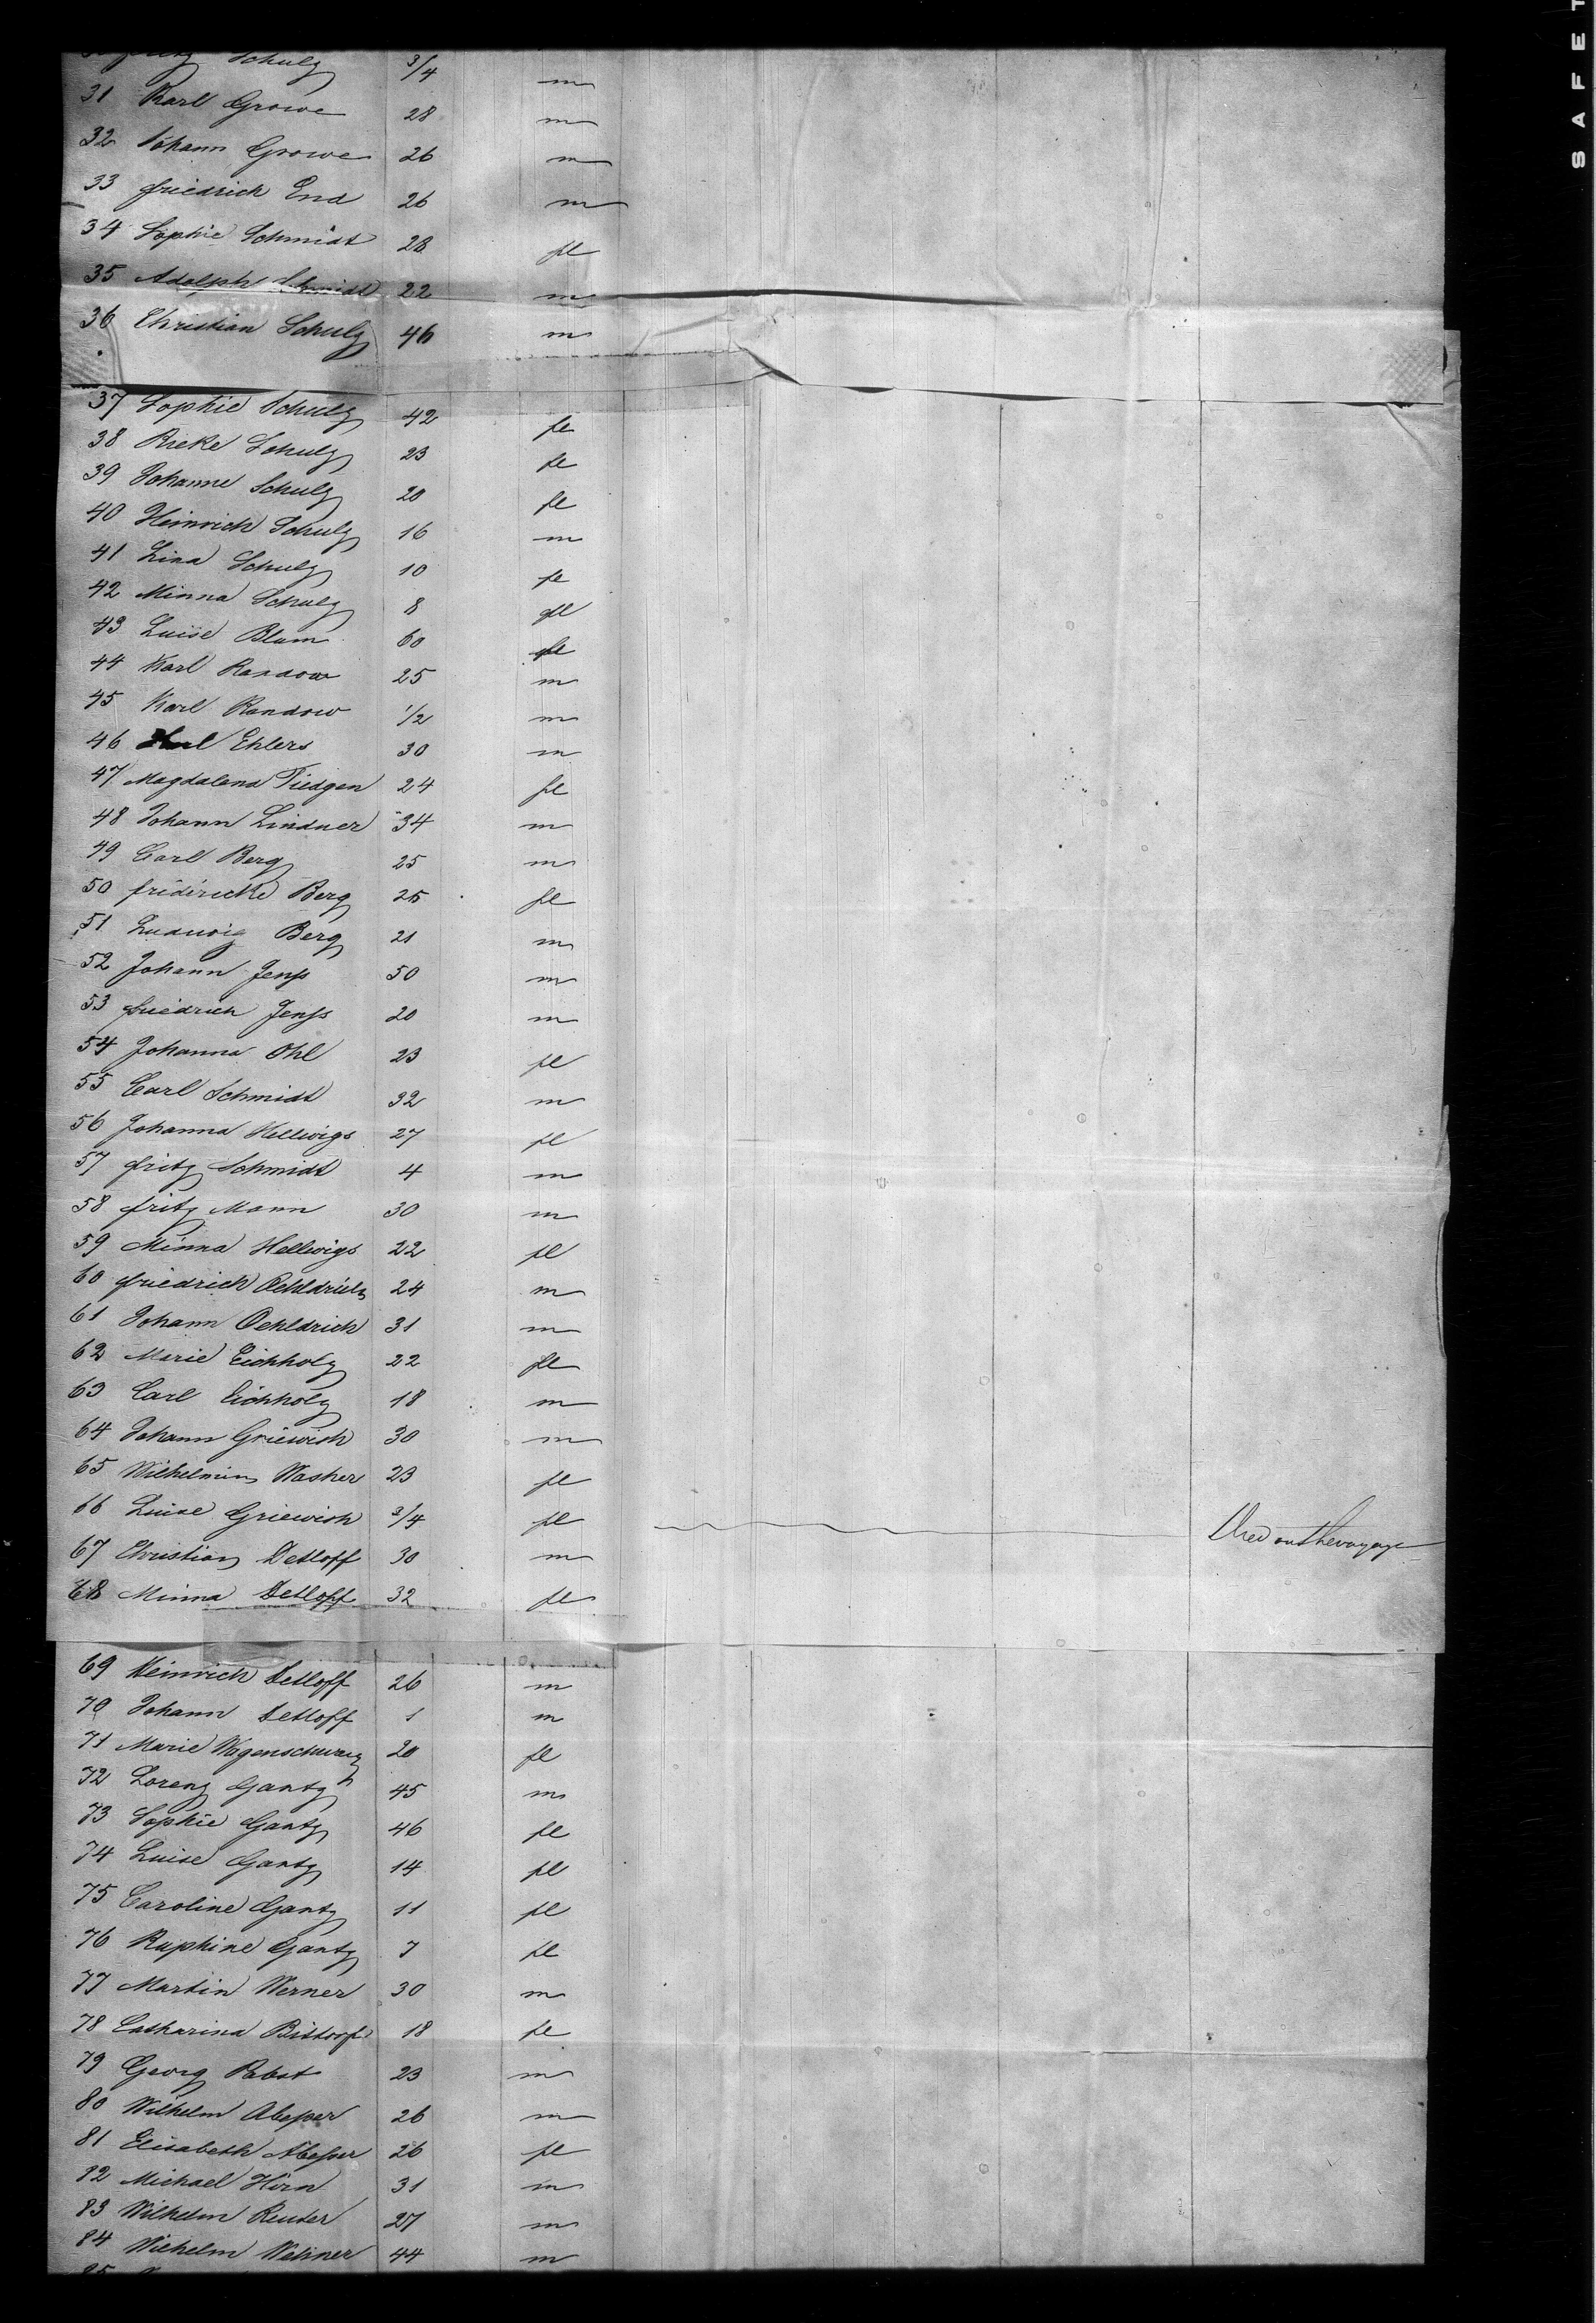 Schulz 3/4 m
31 Karl Growe 28 m
32 Johann Growe 26 m
33 Friedrich End 26 m
34 Sophie Schmidt 28 fl
35 Adolph Schmidt 22 m
36 Christian Schulz 46 m
37 Sophie Schulz 42 fe
38 Rieke Schulz 23 fe
39 Johanne Schulz 20 fe
40 Heinrich Schulz 16 m
41 Lina Schulz 10 fe
42 Minna Schulz 8 fl
43 Luise Blum 60 fl
44 Karl Randow 25 m
45 Karl Randow 1/2 m
46 Ehlers 30 m
47 Magdalena Tiedgen 24 fl
48 Johann Lindner 34 m
49 Carl Berg 25 m
50 fridericke Berg 25 fl
51 Ludwig Berg 21 m
52 Johann Jenss 50 m
53 Friedrich Jenss 20 m
54 Johanna Ohl 23 fl
55 Carl Schmidt 32 m
56 Johanna Hellwigs 27 fl
57 Fritz Schmidt 4 m
58 Fritz Mann 30 m
59 Minna Hellwigs 22 fl
60 Friedrich Oehldrich 24 m
61 Johann Oehldrich 31 m
62 Marie Eichholz 22 fl
63 Carl Eichholz 18 m
64 Johann Griewish 30 m
65 Wilhelmin Wasker 23 fl
66 Luise Griewish 3/4 fl Died on the voyage
67 Christian Detloff 30 m
68 Minna Detloff 32 fl
69 Heinrich Detloff 26 m
70 Johann Detloff 1 m
71 Marie Wagenschwanz 20 fl
72 Lorenz Gantz 45 m
73 Sophie Gantz 46 fl
74 Luise Gantz 14 fl
75 Caroline Gantz 11 fl
76 Ruphine Gantz 7 fl
77 Martin Werner 30 m
78 Catharina Bittorf 18 fe
79 Georg Pabst 23 m
80 Wilhelm Abesser 26 m
81 Elisabeth Abesser 26 fl
82 Michael Hörn 31 m
83 Wilhelm Reuter 27 m
84 Wilhelm Wehner 44 m
85
SAFET